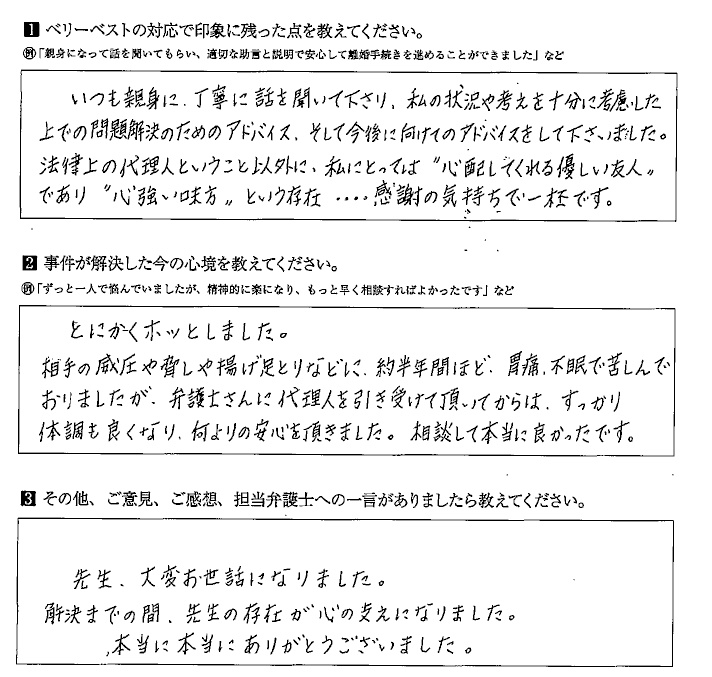 1 ベリーベストの対応で印象に残った点を教えてください。
例「親身になって話を聞いてもらい、適切な助言と説明で安心して離婚手続きを進めることができました」など
いつも親身に、丁寧に話を聞いて下さり、私の状況や考えを十分に考慮した
上での問題解決のためのアドバイス、そして今後に向けてのアドバイスをして下さいました。
法律上の代理人ということ以外に、私にとっては〝心配してくれる優しい友人〟
であり〝心強い味方〟という存在‥‥感謝の気持ちで一杯です。
2 事件が解決した今の心境を教えてください。
例「ずっと一人で悩んでいましたが、精神的に楽になり、もっと早く相談すればよかったです」など
とにかくホッとしました。
相手の威圧や脅しや揚げ足とりなどに、約半年間ほど、胃痛、不眠で苦しんで
おりましたが、弁護士さんに代理人を引き受けて頂いてからは、すっかり
体調も良くなり、何よりの安心を頂きました。相談して本当に良かったです。
3 その他、ご意見、ご感想、担当弁護士への一言がありましたら教えてください。
先生、大変お世話になりました。
解決までの間、先生の存在が心の支えになりました。
本当に本当にありがとうございました。